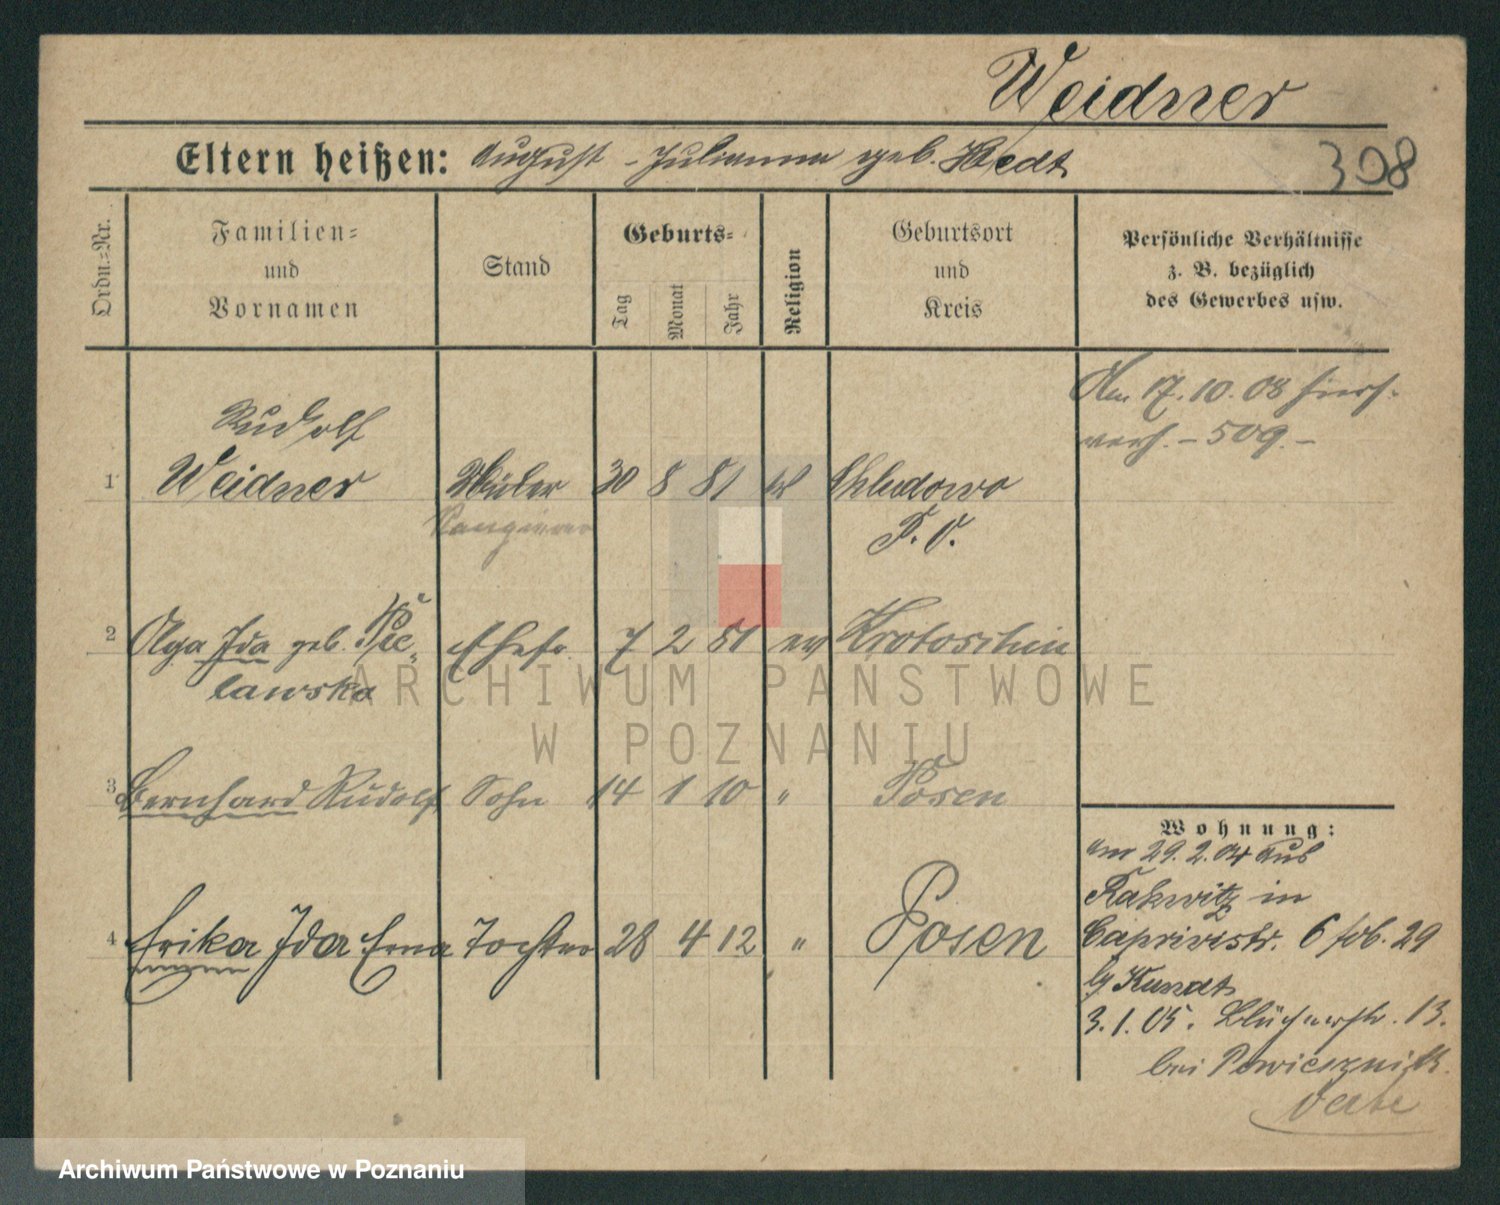 Weidner
Eltern heißen: August - Julianna geb. Hedt
308
Ordn.=Nr.
Familien=
und
Vornamen
Stand
Geburts=
Tag
Monat
Jahr
Religion
Geburtsort
und
Kreis
Persönliche Verhältnisse
z. B. bezüglich
des Gewerbes usw.
Am 17. 10. 08 hiers.
verh. - 509. -
Rudolf
1 Weidner 30 8 81 Chludowo
P. O.
2 Olga Ida geb. Pie„ Ehefr. 7 2 81 ev Krotoschin
lawska
3 Bernhard Rudolf Sohn 14 1 10 " Posen
4 Erika Ida Erna Tochter 28 4 12 " Posen
Wohnung:
am 29. 2. 04 aus
Rakwitz in
Caprivistr. 6 29
by Kundt
3. 1. 05. Blücherstr. 13.
bei
ARCHIWUM PAŃSTWOWE
W POZNANIU
Archiwum Państwowe w Poznaniu